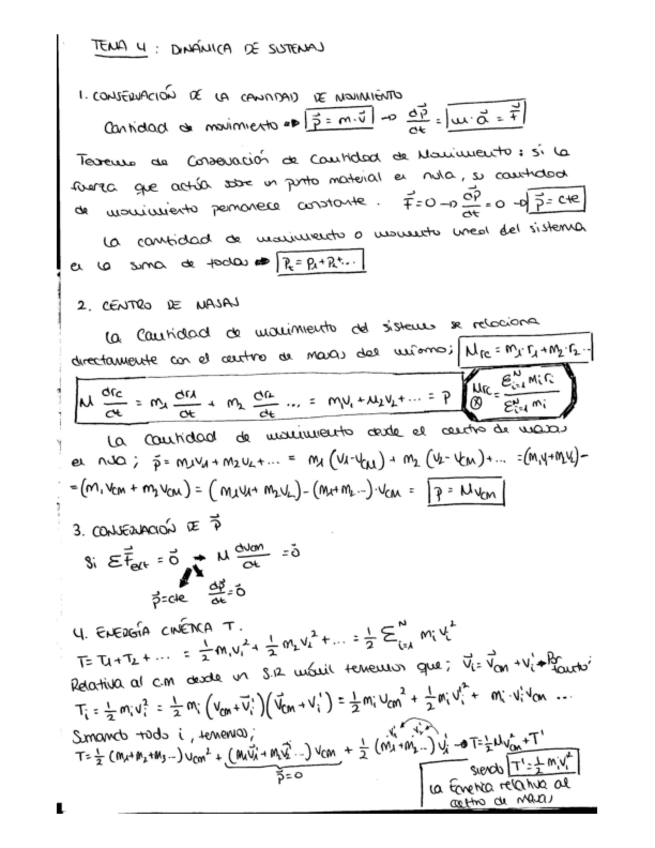 TEMA 4 : DINÁMICA DE SISTEMAS
1. CONSERVACIÓN DE LA CANTIDAD DE MOVIMIENTO
Cantidad de movimiento → p⃗ = m·v⃗ → dp⃗/dt = m·a⃗ = F⃗
Teorema de Conservación de Cantidad de Movimiento: si la
fuerza que actúa sobre un punto material es nula, su cantidad
de movimiento permanece constante. F⃗=0 → dp⃗/dt = 0 → p⃗ = cte
La cantidad de movimiento o momento lineal del sistema
es la suma de todas → Pt = P1 + P2 + ...
2. CENTRO DE MASAS
La Cantidad de movimiento del sistema se relaciona
directamente con el centro de masas del mismo; Mrc = m1·r1 + m2·r2 ...
M drc/dt = m1 dr1/dt + m2 dr2/dt ... = m1v1 + m2v2 + ... = p
Mrc = Σ(i=1)^N mi ri / Σ(i=1)^N mi
La cantidad de movimiento desde el centro de masas
es nula; p⃗ = m1v1 + m2v2 + ... = m1 (v1-vCM) + m2 (v2-vCM) + ... = (m1v1+m2v2) -
= (m1 vCM + m2 vCM) = (m1v1 + m2v2) - (m1+m2 ...)·vCM = p = MvCM
3. CONSERVACIÓN DE p⃗
Si ΣF⃗ext = 0⃗ → M dvcm/dt = 0⃗
p⃗=cte dp⃗/dt = 0⃗
4. ENERGÍA CINÉTICA T.
T = T1 + T2 + ... = 1/2 m1v1² + 1/2 m2v2² + ... = 1/2 Σ(i=1)^N mi vi²
Relativa al c.m desde un S.R móvil tenemos que; v⃗i = v⃗cm + vi' → Por tanto:
Ti = 1/2 mi vi² = 1/2 mi (vcm + v⃗i') (v⃗cm + vi') = 1/2 mi vcm² + 1/2 mi vi'² + mi·vi' vcm ...
Sumando todo i, tenemos;
T = 1/2 (m1+m2+m3...) vcm² + (m1v⃗1' + m2v⃗2' ...) vcm + 1/2 (m1+m2...) vi' → T = 1/2 Mvcm² + T'
p⃗=0
siendo T' = 1/2 mi vi²
la Ecinetica relativa al
centro de masas